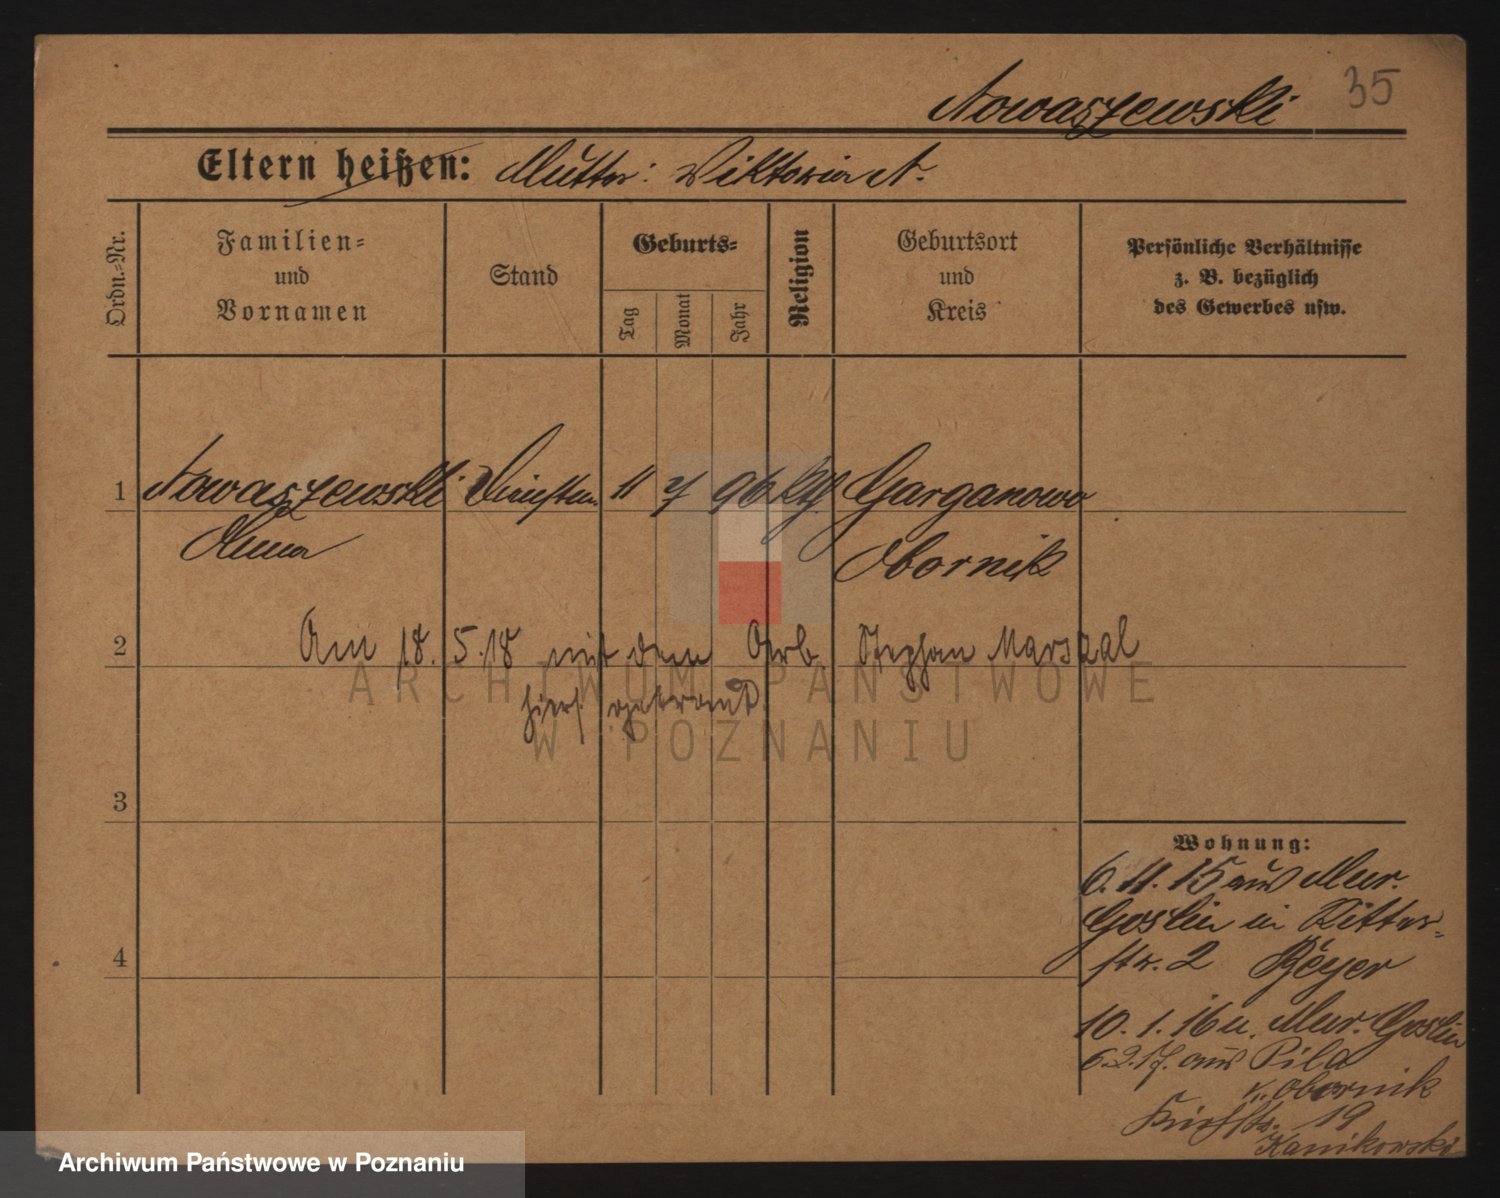 Nowaszewski 35
Eltern heißen: Mutter: Viktoria N.
Ordn.-Nr.
Familien-
und
Vornamen
Stand
Geburts-
Tag
Monat
Jahr
Religion
Geburtsort
und
Kreis
Persönliche Verhältnisse
z. B. bezüglich
des Gewerbes usw.
1 Nowaszewski 11 7 96 kth. Garganowo
Anna Obornik
2 Am 18. 5. 18 mit dem Arb. Stephan Marszal
hiers. getraut.
ARCHIWUM PAŃSTWOWE
W POZNANIU
3
4
Wohnung:
6. 11. 15 aus Mur.
Goslin in Ritter-
str. 2 Beyer
10. 1. 16 n. Mur. Goslin
6.2.17. aus Pila
K. Obornik
19
Kanikowski
Archiwum Państwowe w Poznaniu